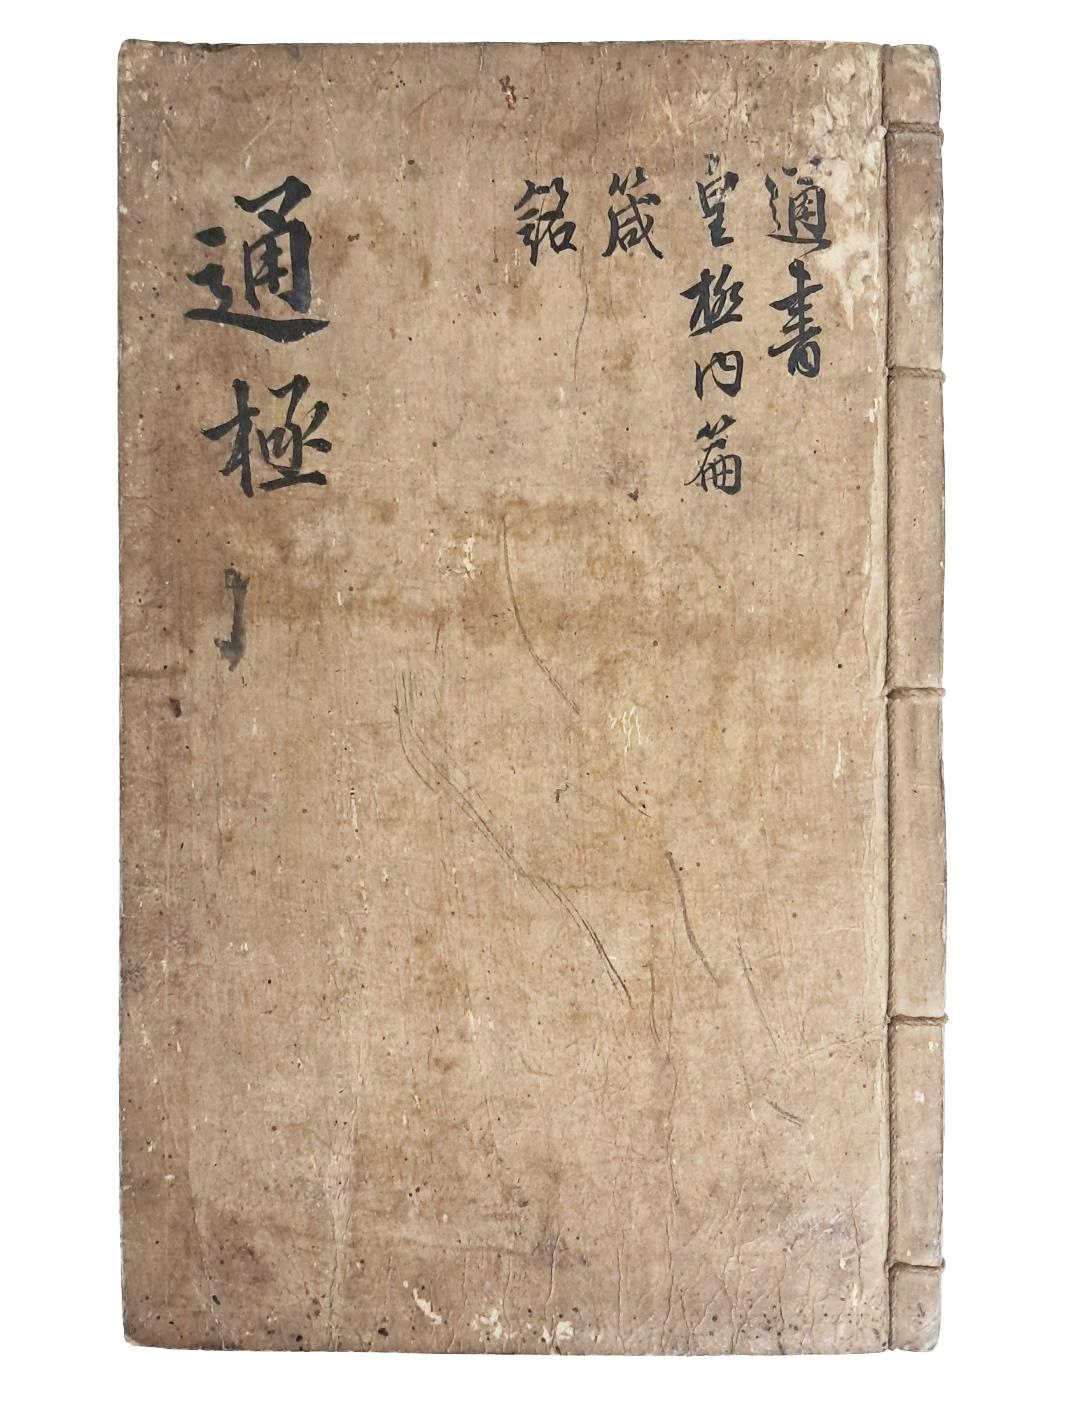 通書
皇極内篇
箴
銘
通極